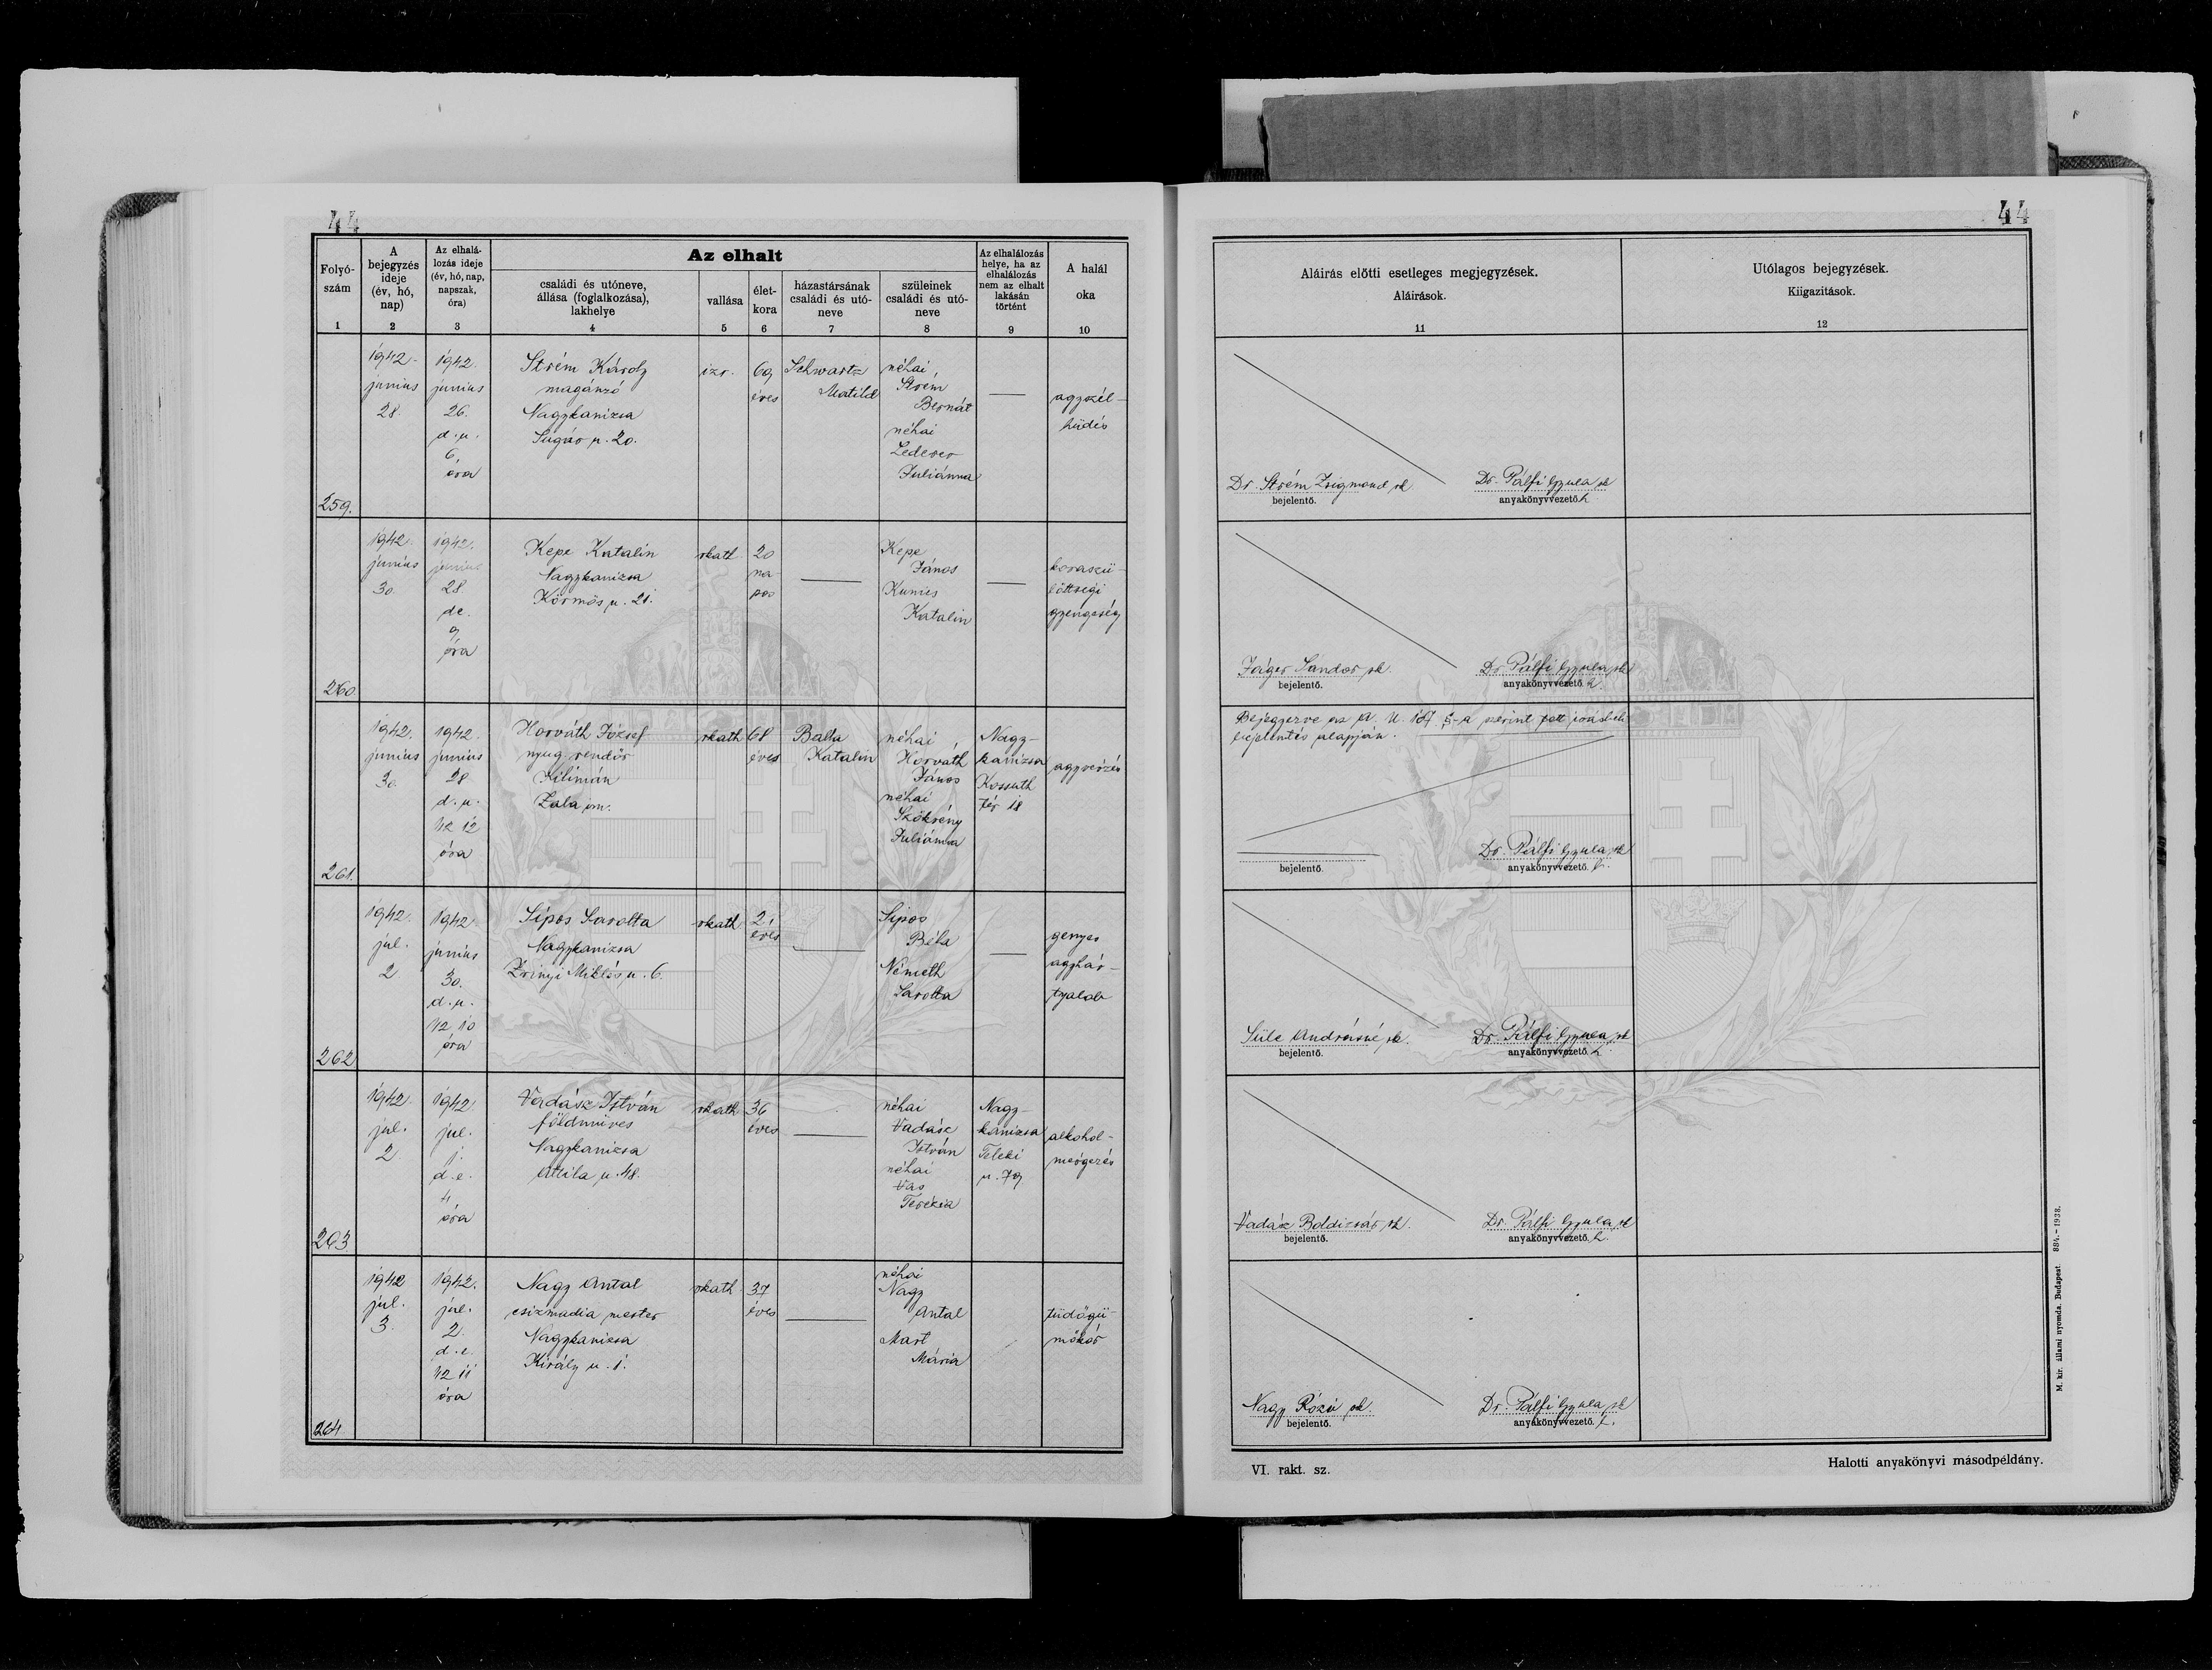 44
Folyó-
szám
1
A
bejegyzés
ideje
(év, hó,
nap)
2
Az elhalá-
lozás ideje
(év, hó, nap,
napszak,
óra)
3
Az elhalt
családi és utóneve,
állása (foglalkozása),
lakhelye
4
vallása
5
élet-
kora
6
házastársának
családi és utó-
neve
7
szüleinek
családi és utó-
neve
8
Az elhalálozás
helye, ha az
elhalálozás
nem az elhalt
lakásán
történt
9
A halál
oka
10
259.
1942.
junius
28.
1942.
junius
26.
d.u.
6.
óra
Strém Károly
magánzó
Nagykanizsa
Sugár u. 20.
izr.
69
éves
Schwartz
Matild
néhai
Strém
Bernát
néhai
Lederer
Juliánna
agyszél-
hüdés
260.
1942.
junius
30.
1942.
junius
28.
de.
9
óra
Kepe Katalin
Nagykanizsa
Körmös u. 21.
rkath
20
na-
pos
Kepe
János
Kunics
Katalin
koraszü-
löttségi
gyengeség
261.
1942.
junius
30.
1942.
junius
28.
d.u.
1/2 12
óra
Horváth József
nyug. rendőr
Kilimán
Zala vm.
rkath
68
éves
Balha
Katalin
néhai
Horváth
János
néhai
Szökrény
Juliánna
Nagy-
kanizsa
Kossuth
tér 18
agyvérzés
262
1942.
jul.
2
1942.
junius
30.
d.u.
1/2 10
óra
Sipos Sarolta
Nagykanizsa
Zrinyi Miklós u. 6.
rkath
21
éves
Sipos
Béla
Németh
Sarolta
genyes
agyhár-
tyalob
263
1942.
jul.
2
1942
jul.
1.
d.e.
4
óra
Vadász István
földmüves
Nagykanizsa
Attila u. 48.
rkath
36
éves
néhai
Vadász
István
néhai
Vas
Terézia
Nagy-
kanizsa
Teleki
u. 79
alkohol-
mérgezés
264
1942
jul.
3.
1942.
jul.
2.
d.e.
1/2 11
óra
Nagy Antal
csizmadia mester
Nagykanizsa
Király u. 1.
rkath
37
éves
néhai
Nagy
Antal
Mart
Mária
tüdőgü-
mőkór
44
Aláirás előtti esetleges megjegyzések.
Aláirások.
11
Utólagos bejegyzések.
Kiigazitások.
12
Dr. Strém Zsigmond sk
bejelentő.
Dr. Pálfi Gyula sk
anyakönyvvezető h.
Jáger Sándor sk.
bejelentő.
Dr. Pálfi Gyula sk
anyakönyvvezető. h.
Bejegyezve az A. U. §-a szerint tett irásbeli
bejelentés alapján.
bejelentő.
Dr. Pálfi Gyula sk
anyakönyvvezető. h.
Süle Andrásné sk.
bejelentő.
Dr. Pálfi Gyula sk
anyakönyvvezető. h.
Vadász Boldizsár sk.
bejelentő.
Dr. Pálfi Gyula sk
anyakönyvvezető. h.
Nagy Rózsi sk.
bejelentő.
Dr. Pálfi Gyula sk
anyakönyvvezető. h.
VI. rakt. sz.
Halotti anyakönyvi másodpéldány.
M. kir. állami nyomda. Budapest. 884.–1938.